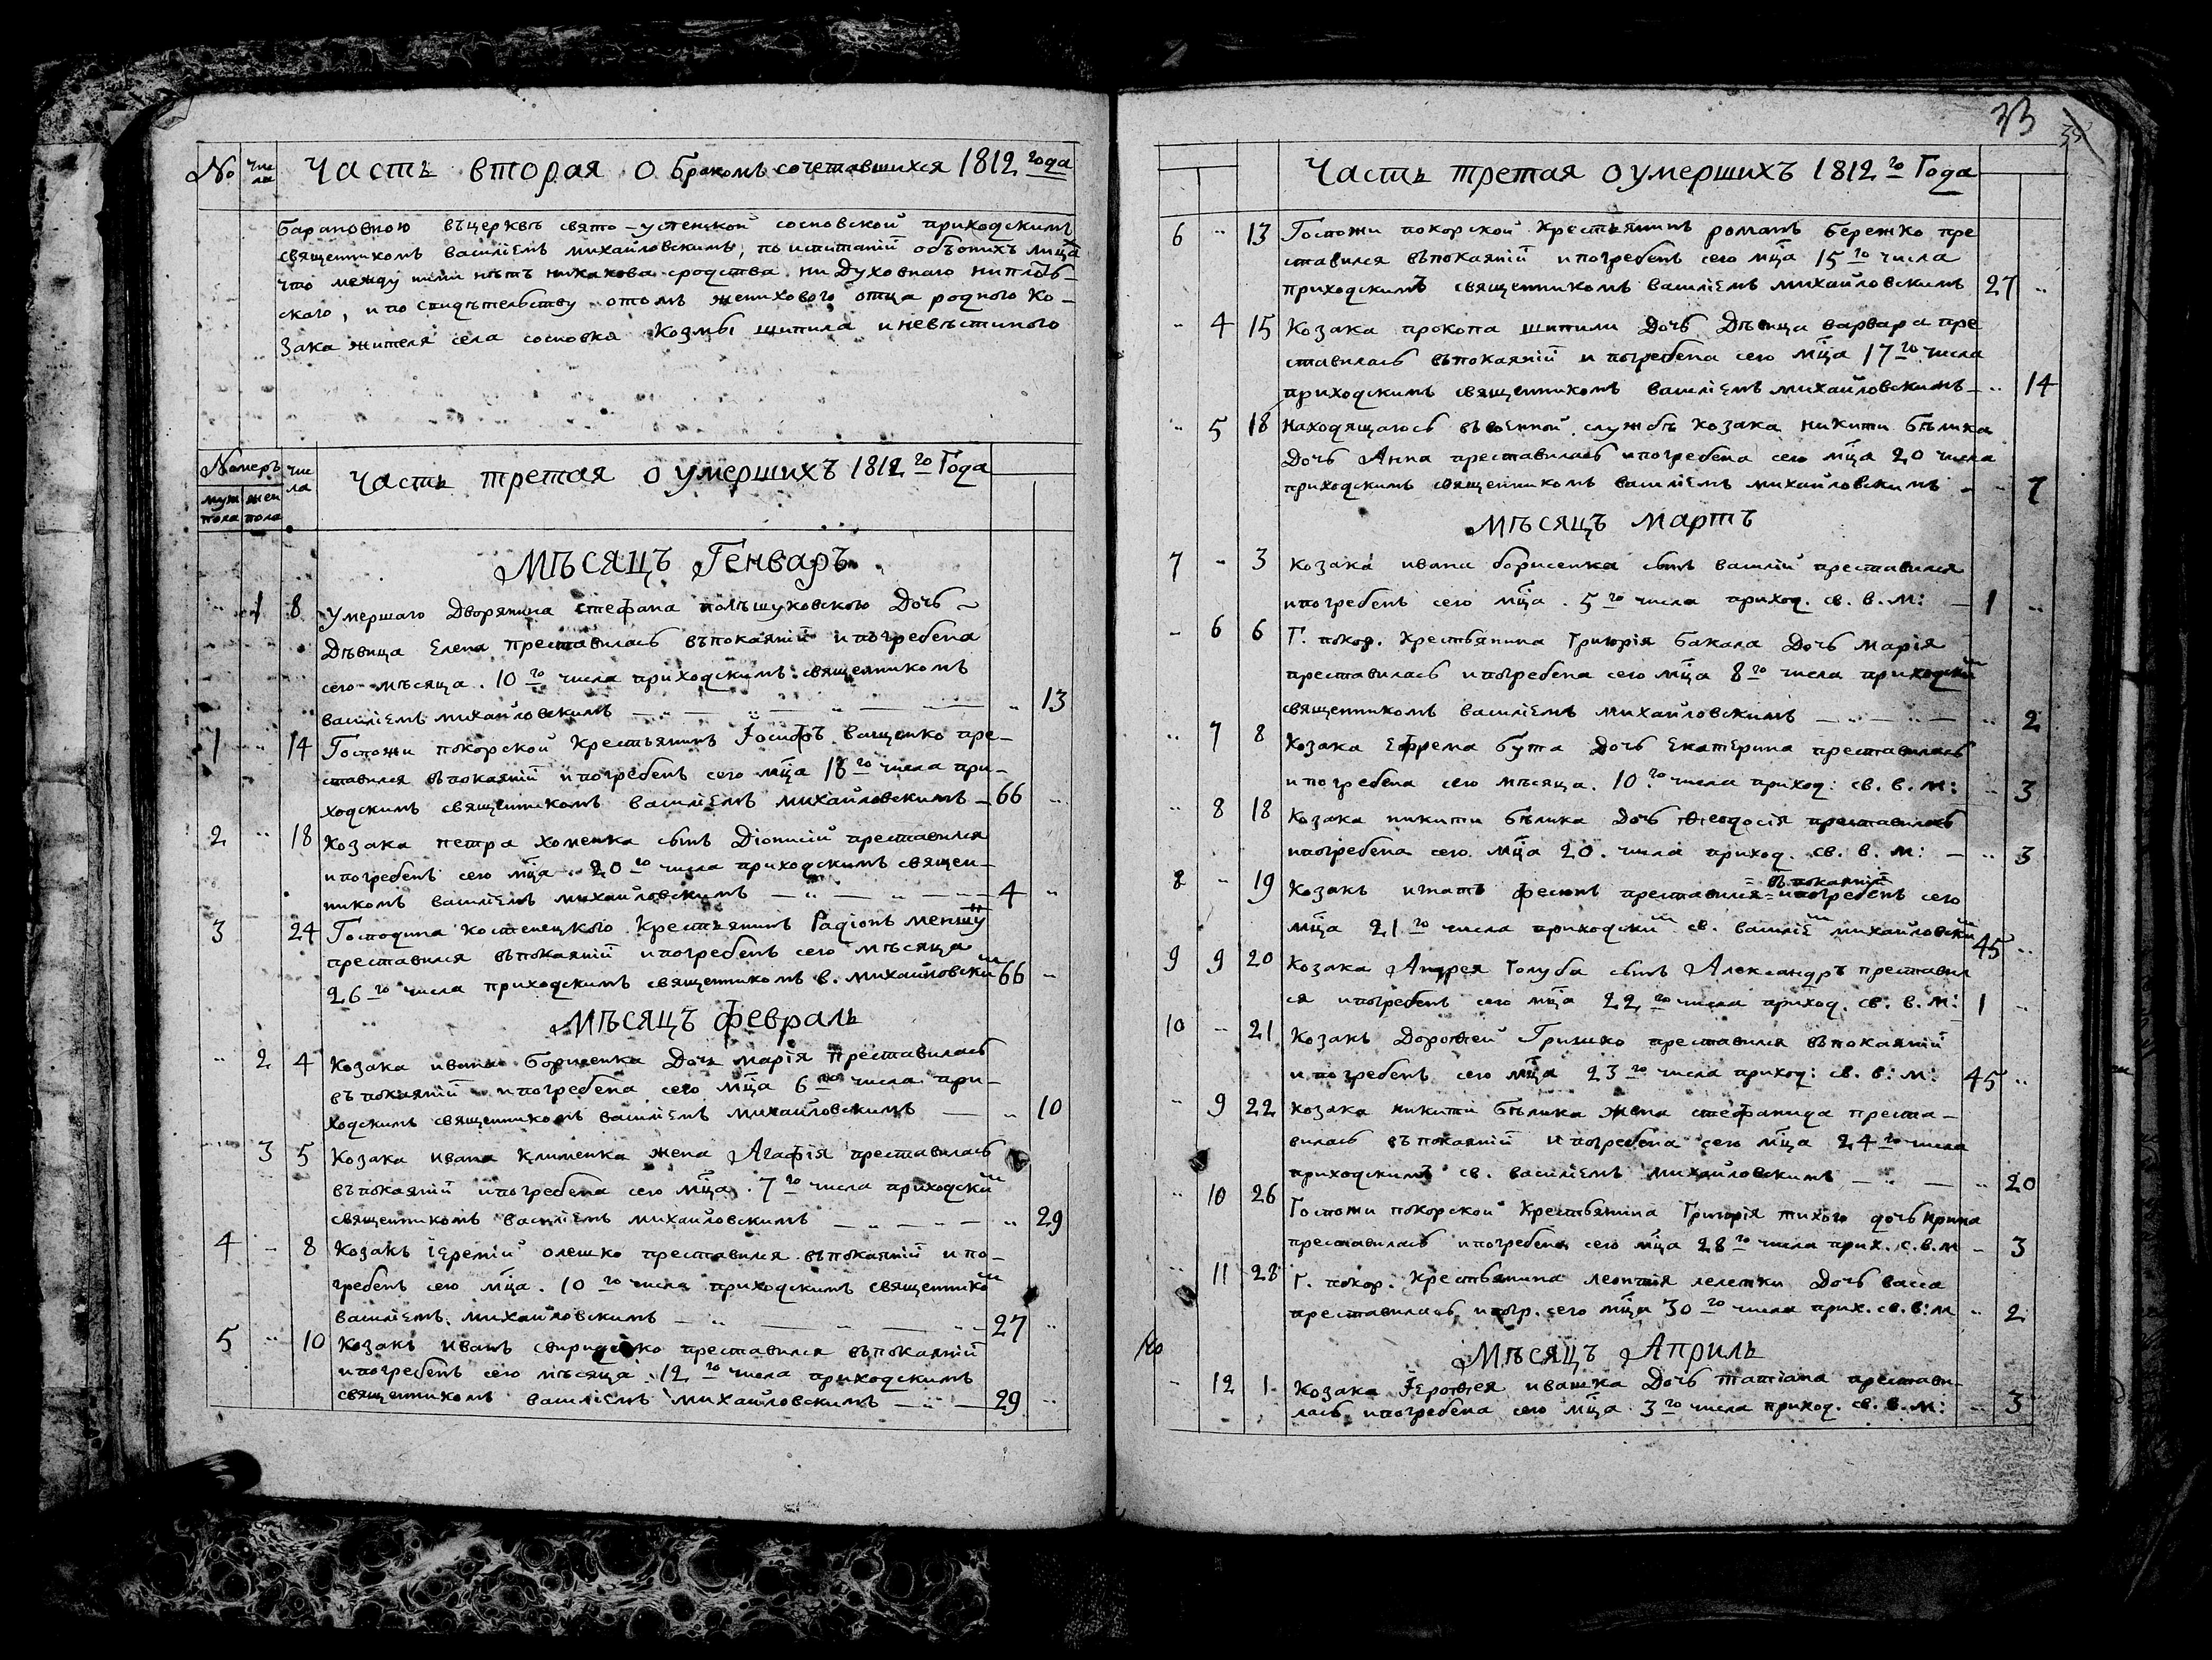 № чис ла Часть вторая о бракомъ сочетавшихся 1812 года
Барановною въ церквѣ свято-успенской сосновской приходскимъ
священникомъ василіемъ михайловскимъ, по испитаніи обѣоихъ лица
что между ними нѣтъ никакова сродства ни духовнаго ниплоть-
скаго, и по свидѣтельству отомъ женихового отца родного ко-
зака жителя села сосновки Козмы шипила и невѣстиного
Номеръ чис ла Часть третая о умершихъ 1812 го Года
муж пола жен пола
Мѣсяцъ Генваръ
1 8 Умершаго Дворянина стефана полѣшуковского Дочь
Дѣвица Елена преставилась въ покаяніи и погребена
сего мѣсяца 10 го числа приходскимъ священникомъ
василіемъ михайловскимъ 13
1 14 Госпожи покорской Крестьянинъ Іосифъ ващенко пре-
ставился въ покаяніи и погребенъ сего мца 16 го числа при-
ходскимъ священникомъ василіемъ михайловскимъ 66
2 18 Козака петра хоменка сынъ Діонисій преставился
и погребенъ сего мца 20 го числа приходскимъ священ-
никомъ василіемъ михайловскимъ 4
3 24 Господина костенецкого Крестьянинъ Радіонъ
преставился въ покаяніи и погребенъ сего мѣсяца
26 го числа приходскимъ священникомъ в. михайловски м 66
Мѣсяцъ февраль
2 4 Козака ивана борисенка Дочь марія преставилась
въ покаяніи и погребена сего мца 6 го числа при-
ходскимъ священникомъ василіемъ михайловскимъ 10
3 5 Козака ивана клименка жена Агафія преставилась
въ покаяніи и погребена сего мца 7 го числа приходски м
священникомъ василіемъ михайловскимъ 29
4 8 Козакъ іеремій олешко преставился въ покаяніи и по-
гребенъ сего мца 10 го числа приходскимъ священнико м
василіемъ михайловскимъ 27
5 10 Козакъ иванъ свириденко преставился въ покаяніи
и погребенъ сего мѣсяца 12 го числа приходскимъ
священникомъ василіемъ михайловскимъ 29
33
Часть третая о умершихъ 1812 го Года
6 13 Госпожи покорской Крестьянинъ романъ бережко пре
ставился въ покаяніи и погребенъ сего мца 15 го числа
приходскимъ священникомъ василіемъ михайловскимъ 27
4 15 Козака прокопа шипили Дочь Дѣвица варвара пре
ставилась въ покаяніи и погребена сего мца 17 го числа
приходскимъ священникомъ василіемъ михайловскимъ 14
5 18 Находящагось въ военной службѣ козака никити бѣлика
Дочь Анна преставилась и погребена сего мца 20 числа
приходскимъ священникомъ василіемъ михайловскимъ 7
Мѣсяцъ мартъ
7 3 Козака ивана борисенка сынъ василій преставился
и погребенъ сего мца 5 го числа приход. св. в. м: 1
6 6 Г. покор. крестьянина Григорія бакала Дочь марія
преставилась и погребена сего мца 8 го числа приходски м
священникомъ василіемъ михайловскимъ 2
7 8 Козака Ефрема бута Дочь Екатерина преставилась
и погребена сего мѣсяца 10 го числа приход: св. в. м: 3
8 18 Козака никити бѣлика Дочь Ѳеодосія преставилась
и погребена сего мца 20 числа приход. св. в. м: 3
8 19 Козакъ игнатъ фесюнъ преставился въ покаяніи и погребенъ сего
мца 21 го числа приходски м св. василіе м михайловски м 45
9 9 20 Козака Андрея Голуба сынъ Александръ преставил
ся и погребенъ сего мца 22 го числа приход. св. в. м: 1
10 21 Козакъ Дороѳей Гришко преставился въ покаяніи
и погребенъ сего мца 23 го числа приход: св. в: м: 45
9 22 Козака никити бѣлика жена стефанида преста-
вилась въ покаяніи и погребена сего мца 24 го числа
приходскимъ св. василіемъ михайловскимъ 20
10 26 Госпожи покорской Крестьянина Григорія тихого дочь ирина
преставилась и погребена сего мца 28 го числа прих. с. в. м 3
11 28 Г. покор. Крестьянина леонтія лелетки Дочь васса
преставилась и погр. сего мца 30 го числа прих. св. в: м 2
Мѣсяцъ Априль
12 1 Козака Іероѳея ивашка Дочь татіана престави-
лась и погребена сего мца 3 го числа приход. св. в. м: 3